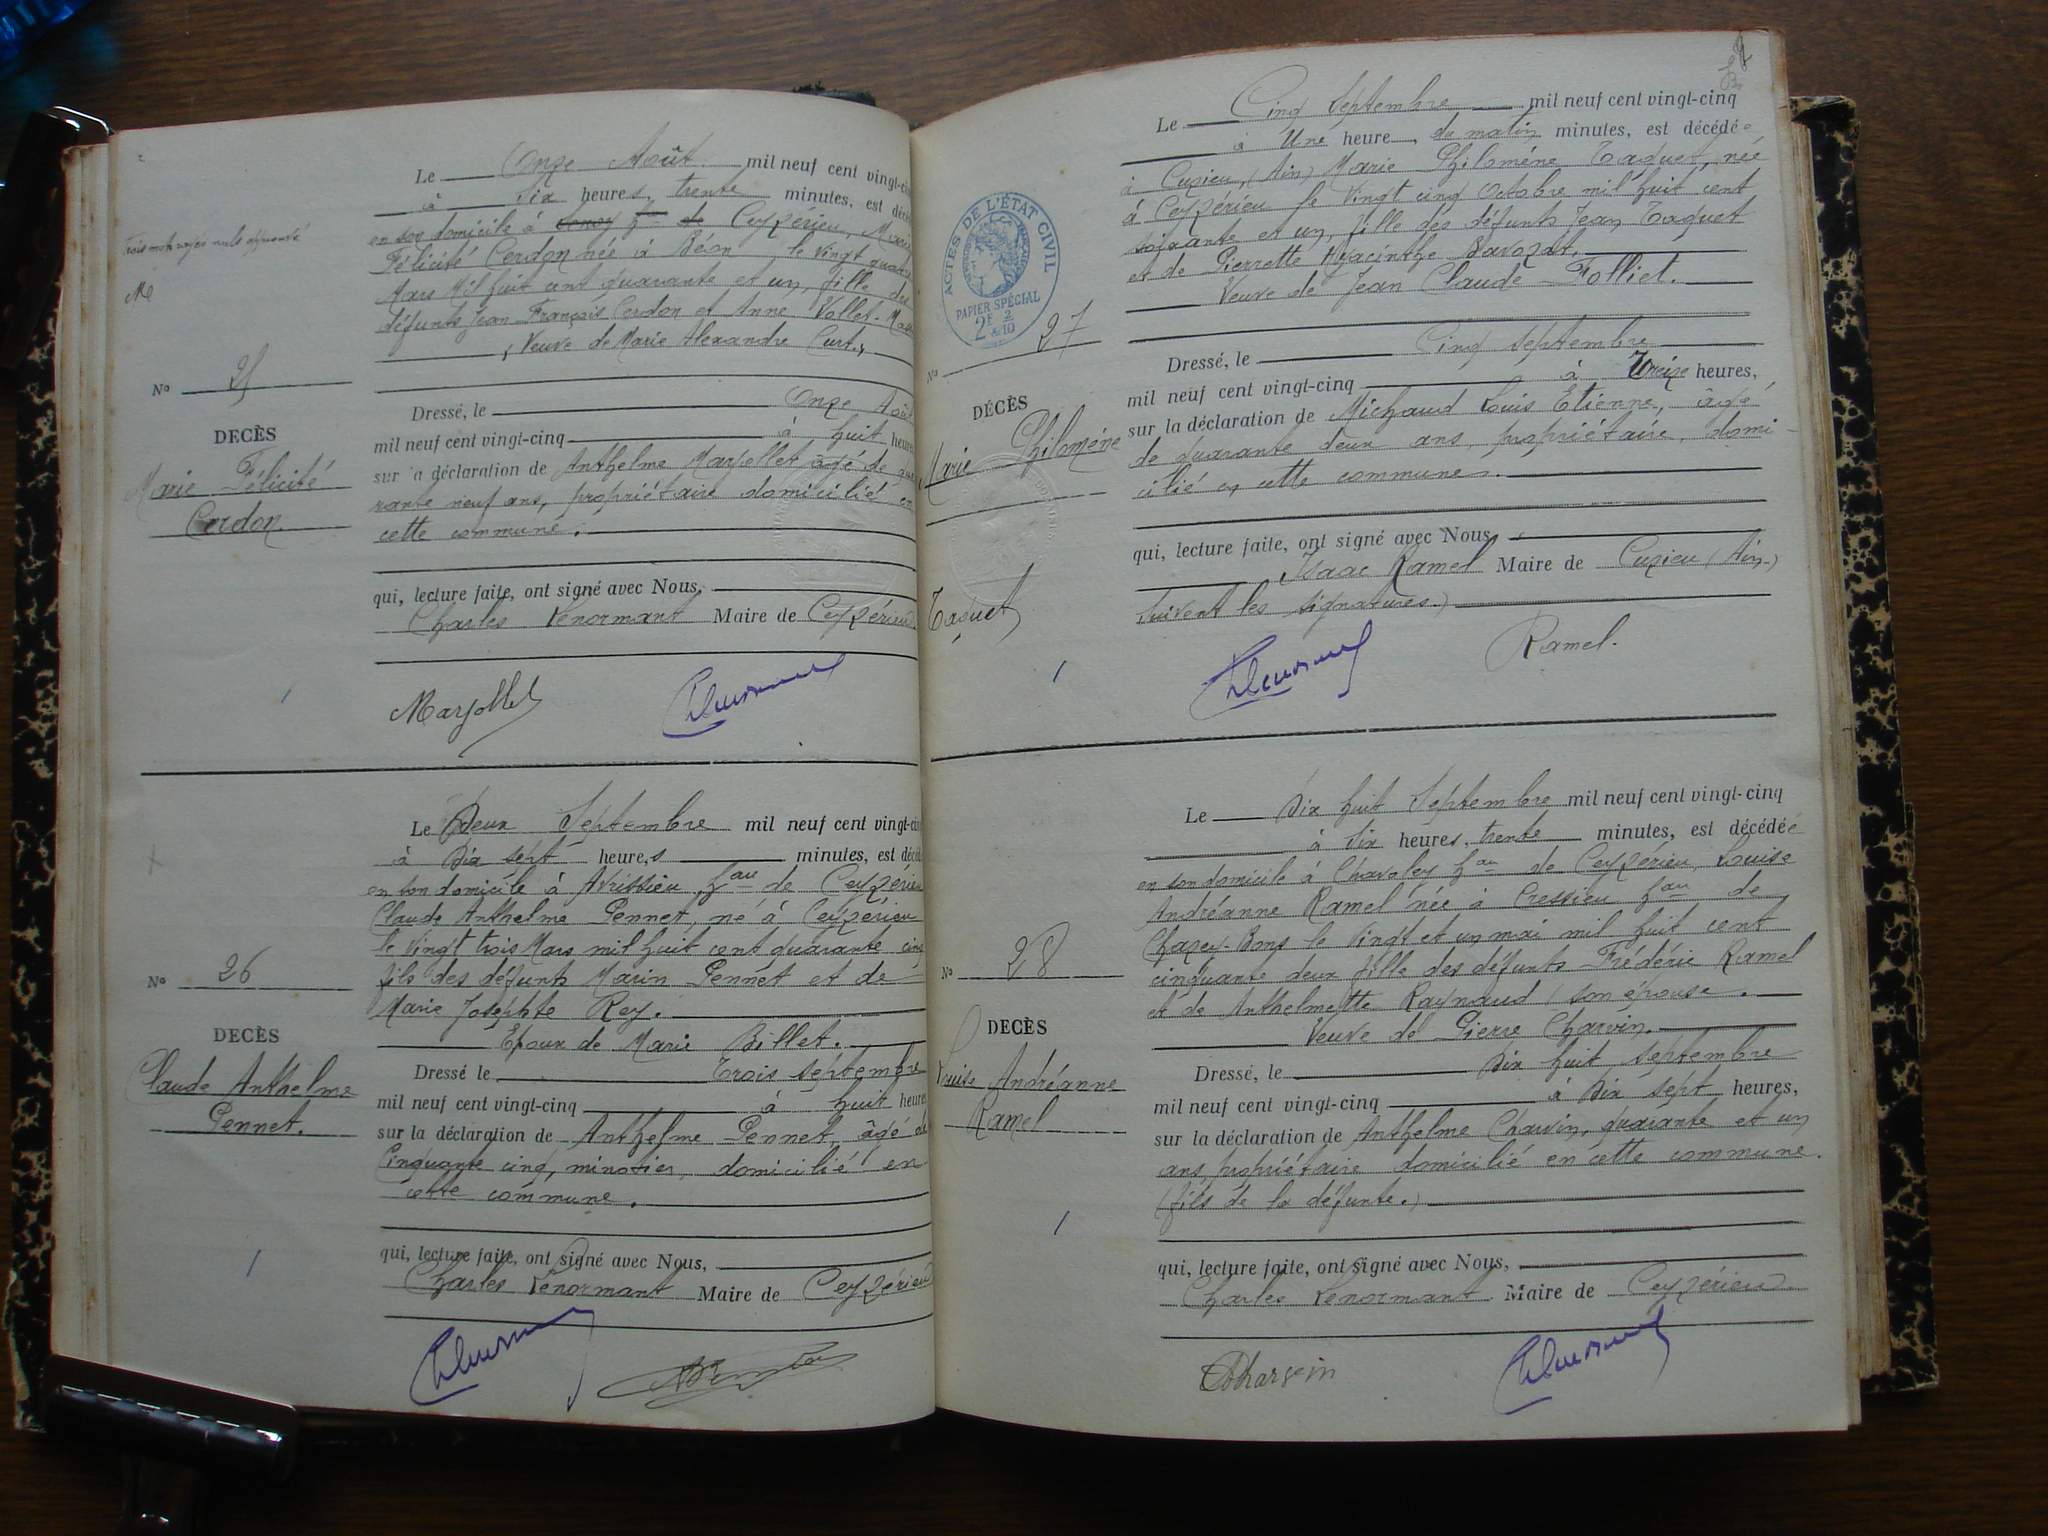 Le Onze Août mil neuf cent vingt-cin
à six heures, trente minutes, est décé
en son domicile à Ceyzérieu, Marie
Félicité Cerdon née à Béon le vingt quatre
Mars Mil huit cent quarante et un, fille des
défunts Jean François Cerdon et Anne Vallet
Veuve de Marie Alexandre Curt.
Trois mots rayés nuls approuvé
No 25
DECÈS
Marie Félicité
Cerdon
Dressé, le Onze Août
mil neuf cent vingt-cinq à huit heures
sur la déclaration de Anthelme Marjollet âgé de qua
rante neuf ans, propriétaire domicilié en
cette commune.
qui, lecture faite, ont signé avec Nous,
Charles Lenormant Maire de Ceyzérieu.
Marjollet
Le Deux Septembre mil neuf cent vingt-cin
à Dix sept heures minutes, est décéd
en son domicile à Avrissieu, hau de Ceyzérieu
Claude Anthelme Pennet, né à Ceyzérieu
le vingt trois Mars mil huit cent quarante cinq
fils des défunts Marin Pennet et de
Marie Josephte Rey.
Epoux de Marie Billet.
No 26
DECÈS
Claude Anthelme
Pennet.
Dressé le Trois septembre
mil neuf cent vingt-cinq à huit heures
sur la déclaration de Anthelme Pennet, âgé de
Cinquante cinq, minotier, domicilié en
cette commune.
qui, lecture faite, ont signé avec Nous,
Charles Lenormant Maire de Ceyzérieu
Le Cinq Septembre mil neuf cent vingt-cinq
à Une heure, du matin minutes, est décédée
à Cuzieu, (Ain) Marie Philomène Taquet, née
à Ceyzérieu le vingt cinq Octobre mil huit cent
soixante et un, fille des défunts Jean Taquet
et de Pierrette Hyacinthe Bavozat,
Veuve de Jean Claude Folliet.
ACTES DE L'ÉTAT CIVIL
PAPIER SPÉCIAL
2F 2/10
No 27
DÉCÈS
Marie Philomène
Taquet
Dressé, le Cinq septembre
mil neuf cent vingt-cinq à Treize heures,
sur la déclaration de Michaud Louis Etienne, âgé
de quarante deux ans, propriétaire, domi-
cilié en cette commune.
qui, lecture faite, ont signé avec Nous,
Isaac Ramel Maire de Cuzieu (Ain)
Suivent les signatures.)
Ramel.
Le Dix huit Septembre mil neuf cent vingt-cinq
à six heures, trente minutes, est décédée
en son domicile à Chavoley hau de Ceyzérieu, Louise
Andréanne Ramel née à Cressieu hau de
Chazey-Bons le vingt et un mai mil huit cent
cinquante deux fille des défunts Frédéric Ramel
et de Anthelmette Raynaud son épouse.
Veuve de Pierre Charvin.
No 28
DECÈS
Louise Andréanne
Ramel
Dressé, le Dix huit septembre
mil neuf cent vingt-cinq à Dix sept heures,
sur la déclaration de Anthelme Charvin, quarante et un
ans, propriétaire domicilié en cette commune.
(fils de la défunte.)
qui, lecture faite, ont signé avec Nous,
Charles Lenormant Maire de Ceyzérieu.